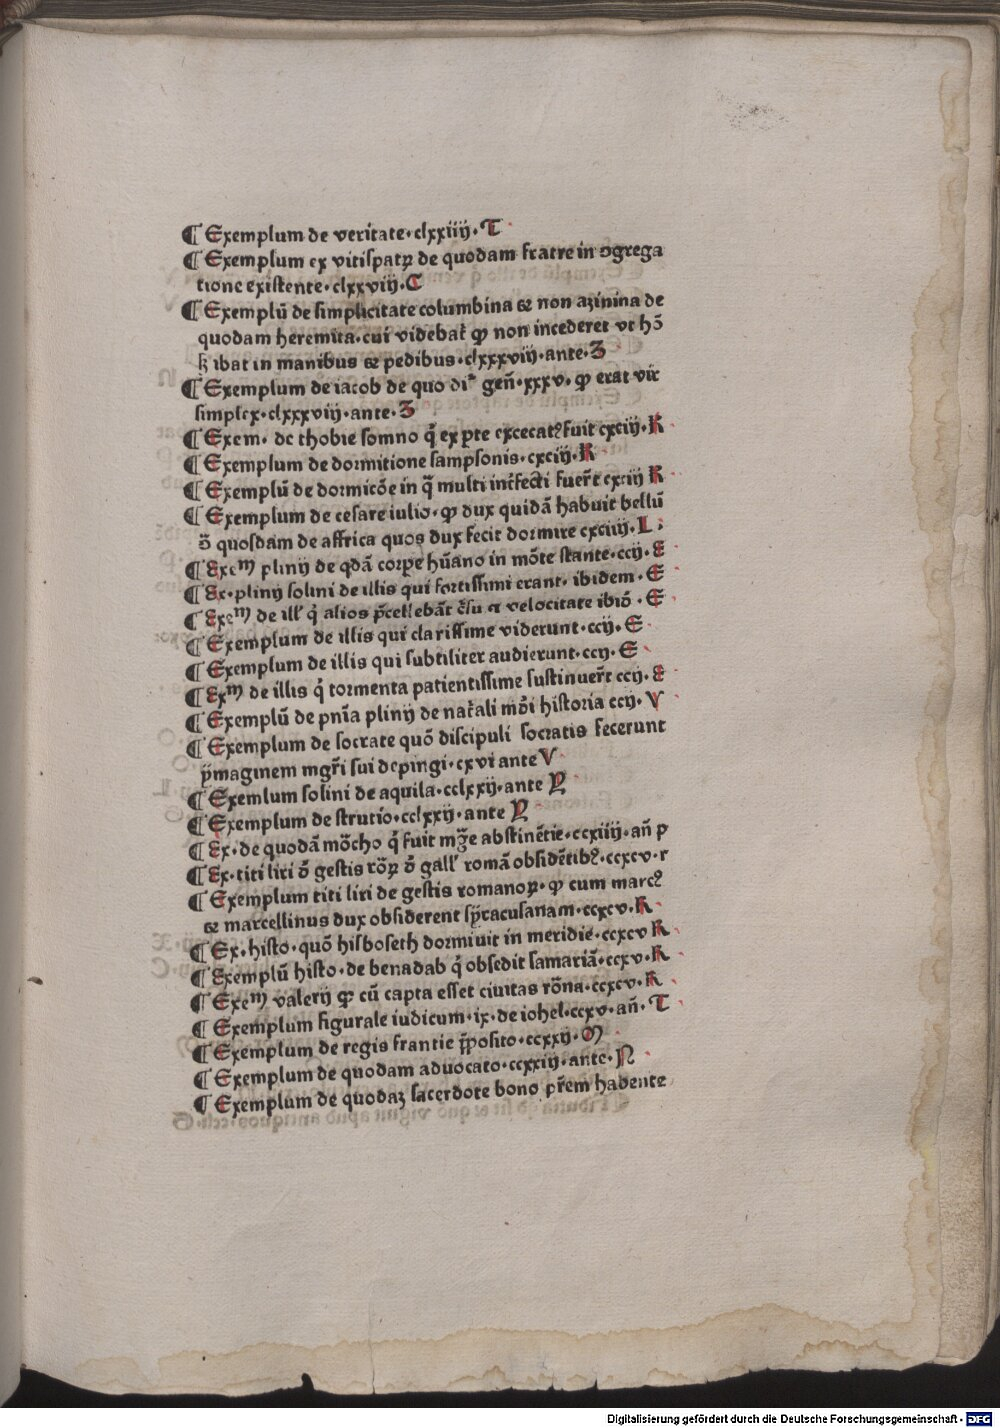 ¶ Exemplum de veritate·clxxiiij·T
¶ Exemplum ex vitispatꝝ de quodam fratre in ↄgrega
tione existente·clxxviij·C
¶ Exemplū de simplicitate columbina & non azinina de
quodam heremita·cui videbat̄ ꝙ non incederet vt hō
s̄ ibat in manibus & pedibus·clxxxviij·ante·Z
¶ Exemplum de iacob de quo di͛ geñ·xxxv·ꝙ erat vir
simplex·clxxxviij·ante·Z
¶ Exem· de thobie somno q̄ ex ꝑte excecatꝰ fuit cxciij·K
¶ Exemplum de dormitione sampsonis·cxciij·K
¶ Exemplū de dormicōe in q̄ multi int̄fecti fuer̄t cxciij K
¶ Exemplum de cesare iulio·ꝙ dux quidā habuit bellū
ō quosdam de affrica quos dux fecit dormire cxciiij·L·
¶ Exeᵐ plinij de qdā corpe hūano in mōte stante·ccij·E
¶ Ex·plinij solini de illis qui fortissimi erant· ibidem·E
¶ Exeᵐ de ill' q̇ alios p̄cellebāt c̄su & velocitate ibiō·E
¶ Exemplum de illis qui clarissime viderunt·ccij·E
¶ Exemplum de illis qui subtiliter audierunt·ccij·E
¶ Exᵐ de illis q̇ tormenta patientissime sustinuer̄t ccij·E
¶ Exemplū de pn̄ia plinij de nat̄ali mōi historia ccij·V
¶ Exemplum de socrate quō discipuli socratis fecerunt
ẏmaginem mgr̄i sui depingi·cxvi ante V
¶ Exemlum solini de aquila·cclxxij·ante Y
¶ Exemplum de strutio·cclxxij·ante Y
¶ Ex·de quodā mōcho q̇ fuit mḡe abstinētie·ccxiiij·an̄ p
¶ Ex·titi liri ō gestis rōꝝ ō gall' romā obsidētibꝰ·ccxcv·r
¶ Exemplum titi liri de gestis romanoꝝ·ꝙ cum marcꝰ
& marcellinus dux obsiderent sẏracusanam·ccxcv·K
¶ Ex·histo·quō hisboseth dormiuit in meridie·ccxcv K
¶ Exemplū histo·de benadab q̇ obsedit samariā·ccxv·K
¶ Exeᵐ valerij ꝙ cū capta esset ciuitas rōna·ccxcv·K
¶ Exemplum figurale iudicum·ix·de iohel·ccxv·an̄·T
¶ Exemplum de regis frantie p̄posito·ccxxij·M
¶ Exemplum de quodam aduocato·ccxxiij·ante·N
¶ Exemplum de quodaz sacerdote bono pr̄em habente
Digitalisierung gefördert durch die Deutsche Forschungsgemeinschaft - DFG